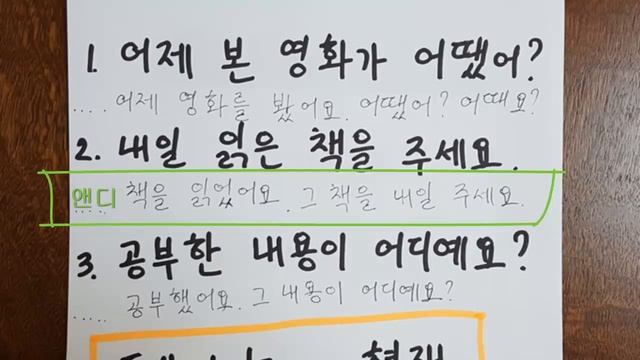 1. 어제 본 영화가 어땠어?
..... 어제 영화를 봤어요. 어땠어? 어때요?
2. 내일 읽은 책을 주세요.
앤디 책을 읽었어요. 그 책을 내일 주세요.
3. 공부한 내용이 어디예요?
..... 공부했어요. 그 내용이 어디예요?